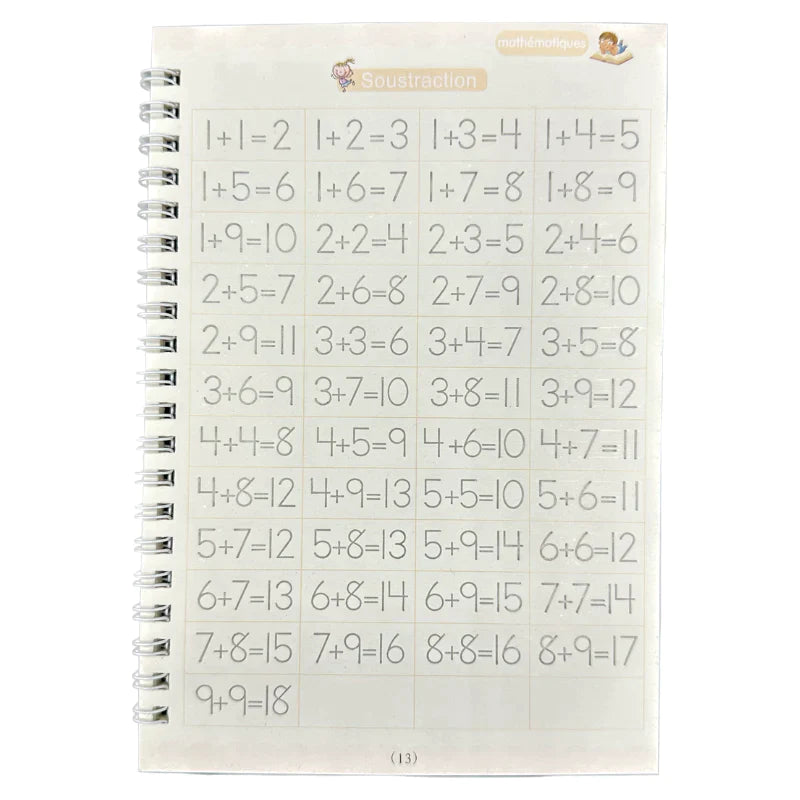 mathématiques
Soustraction
1+1=2 1+2=3 1+3=4 1+4=5
1+5=6 1+6=7 1+7=8 1+8=9
1+9=10 2+2=4 2+3=5 2+4=6
2+5=7 2+6=8 2+7=9 2+8=10
2+9=11 3+3=6 3+4=7 3+5=8
3+6=9 3+7=10 3+8=11 3+9=12
4+4=8 4+5=9 4+6=10 4+7=11
4+8=12 4+9=13 5+5=10 5+6=11
5+7=12 5+8=13 5+9=14 6+6=12
6+7=13 6+8=14 6+9=15 7+7=14
7+8=15 7+9=16 8+8=16 8+9=17
9+9=18
(13)